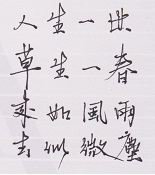 人生一世
草生一春
来如風雨
去似微塵